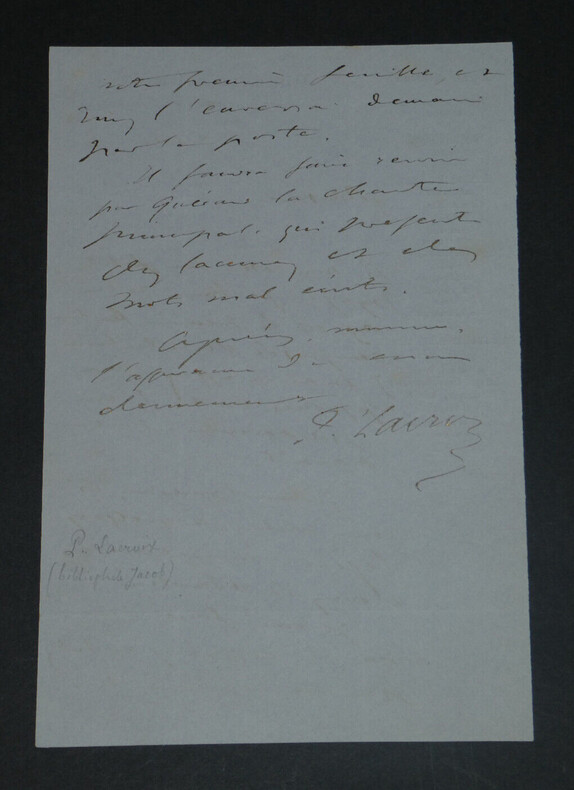 votre première feuille, et
vous l'enverrai demain
par la poste.
Il faudra faire revoir
par la
principal, qui présente
des lacunes et des
mots mal écrits.
Agréez,
l'assurance de mon
dévouement
P. Lacroix
P. Lacroix
(bibliophile Jacob)